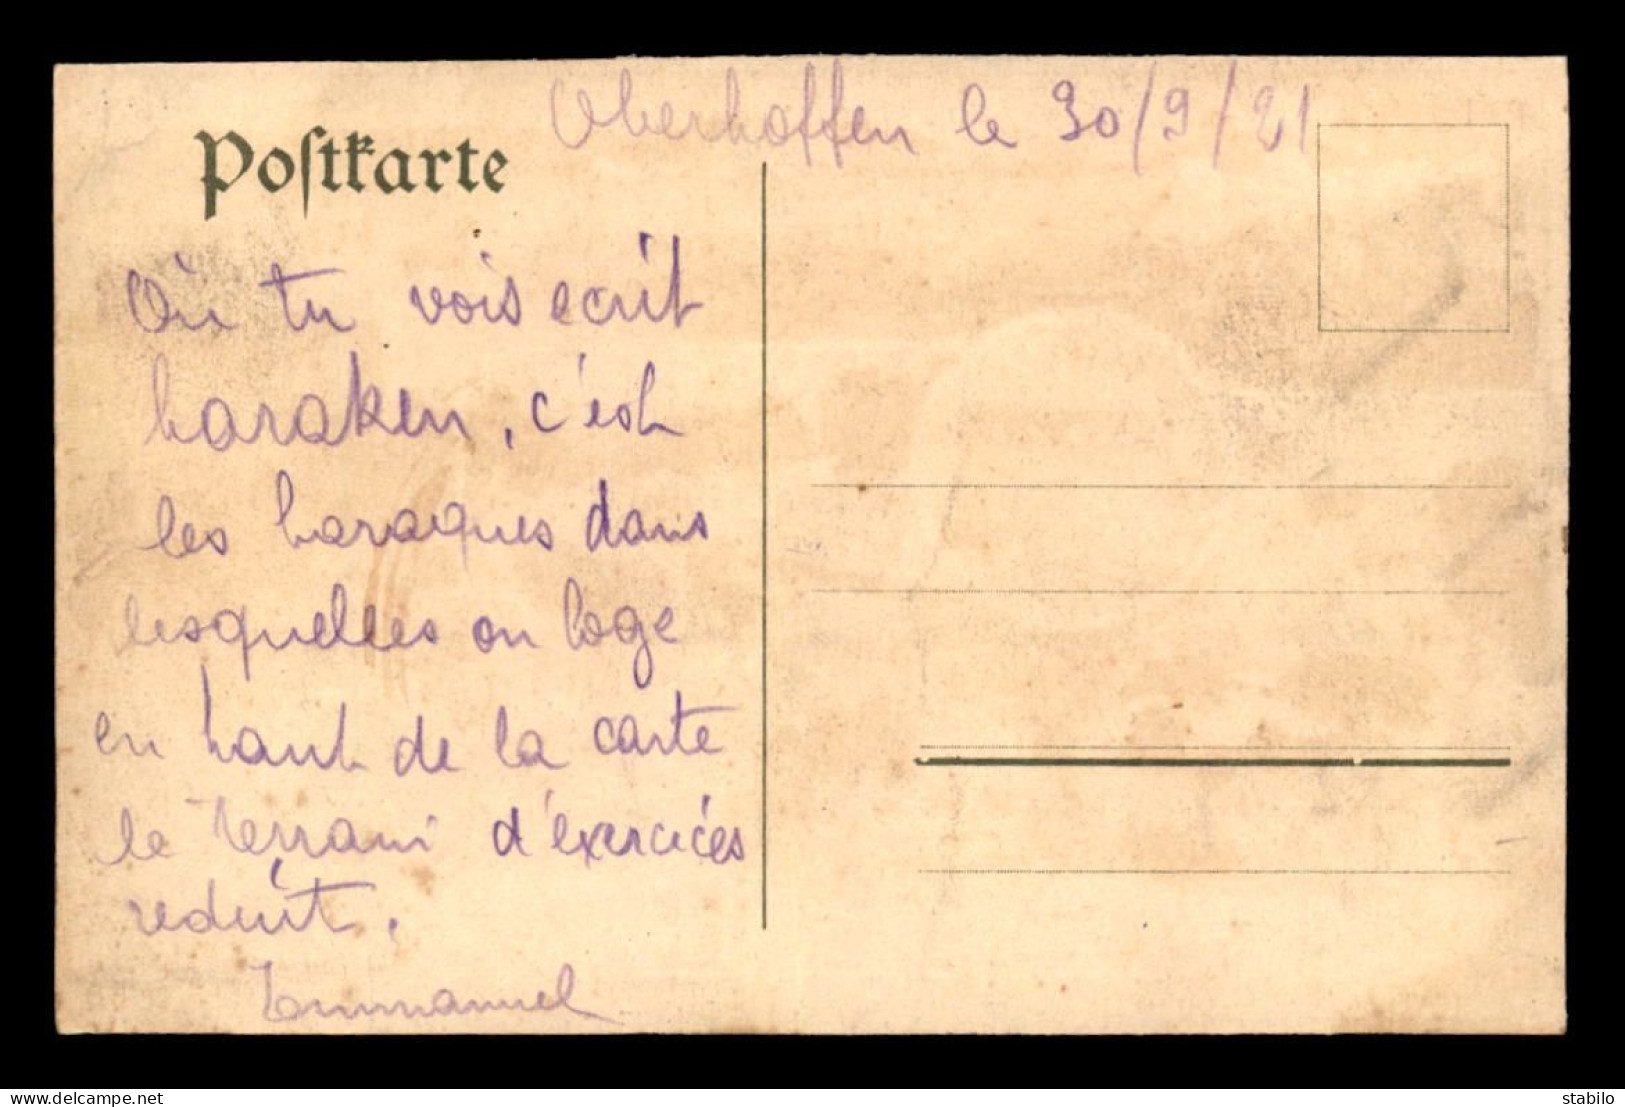 Oberhoffen le 30/9/21
Poſtkarte
Où tu vois ecrit
baraken, c'est
les baraques dans
lesquelles on loge
en haut de la carte
le terrain d'exercices
reduit.
Emmanuel
stabilo